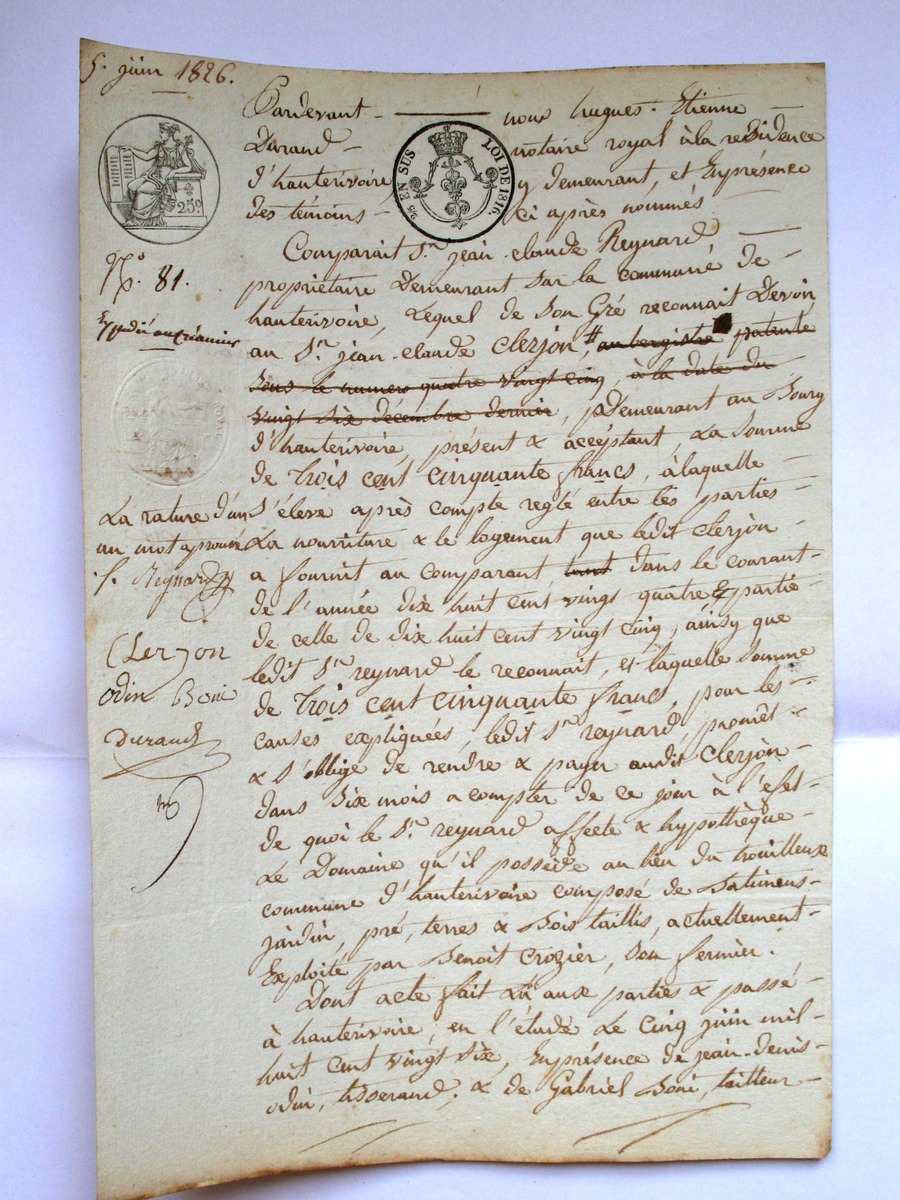 5. juin 1826.
Pardevant nous hugues. Etienne
Durand notaire royal à la residence
d'hauterivoire y demeurant, et Enprésence
des témoins ci après nommés
25 EN SUS LOI DE 1816.
25c
Comparait Sr. jean. claude Reynard
N° 81.
propriétaire Demeurant Sur la commune de
hauterivoire, Lequel de Son Gré reconnait Devoir
au Sr. jean. claude Clerjon #, aubergiste patenté
Sous le numero quatre vingt cinq, à la date du
vingt Six décembre dernier, Demeurant au Bourg
d'hauterivoire, présent & accéptant, La Somme
de Trois cent cinquante francs, à laquelle
S'éleve après compte reglé entre les parties
La nourriture & le logement que ledit Clerjon
a fournit au comparant tant dans le courant
de l'année dix huit cent vingt quatre Epartie
de celle de dix huit cent vingt cinq, ainsy que
ledit Sr. reynard le reconnait, et laquelle Somme
de Trois cent cinquante franc, pour les
causes expliquées, ledit Sr. reynard, promêt
& S'oblige de rendre & payer audit Clerjon
dans Six mois a compter de ce jour à l'efet
de quoi le Sr. reynard affecte & hypothèque
Le Domaine qu'il possède au lieu du trouilleux
commune d'hauterivoire composé de Batimens
jardin, pré, terres & Bois taillis, actuellement
Exploité par Benoit Crozier, Son fermier.
Dont acte fait Lu aux parties & passé
à hauterivoire, en l'étude Le Cinq juin mil
huit cent vingt Six, Enprésence de jean. denis
odin, tisserand, & de Gabriel Boni, tailleur
La rature d'un
un mot aprouvé
f. Reynard
Clerjon
odin Boni
Durand